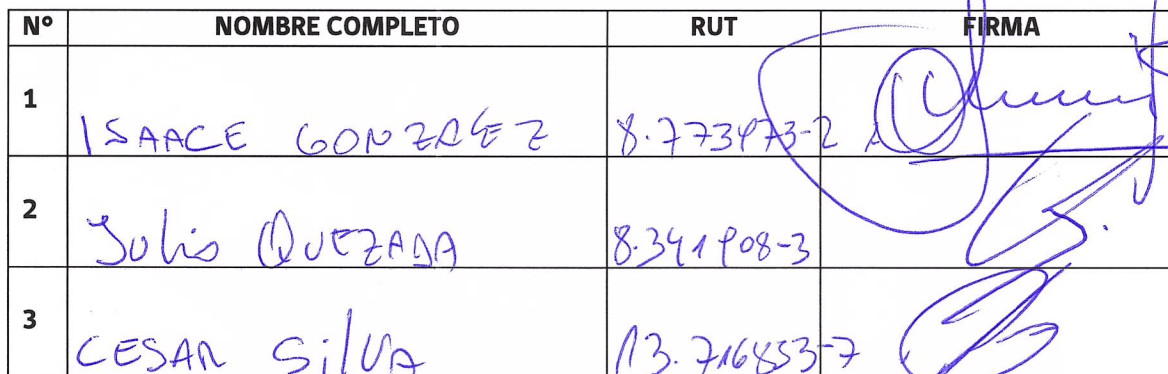 N° NOMBRE COMPLETO RUT FIRMA
1 ISAACE GONZALEZ 8.773973-2
2 Julio QUEZADA 8.341908-3
3 CESAR SilVA 13.716853-7